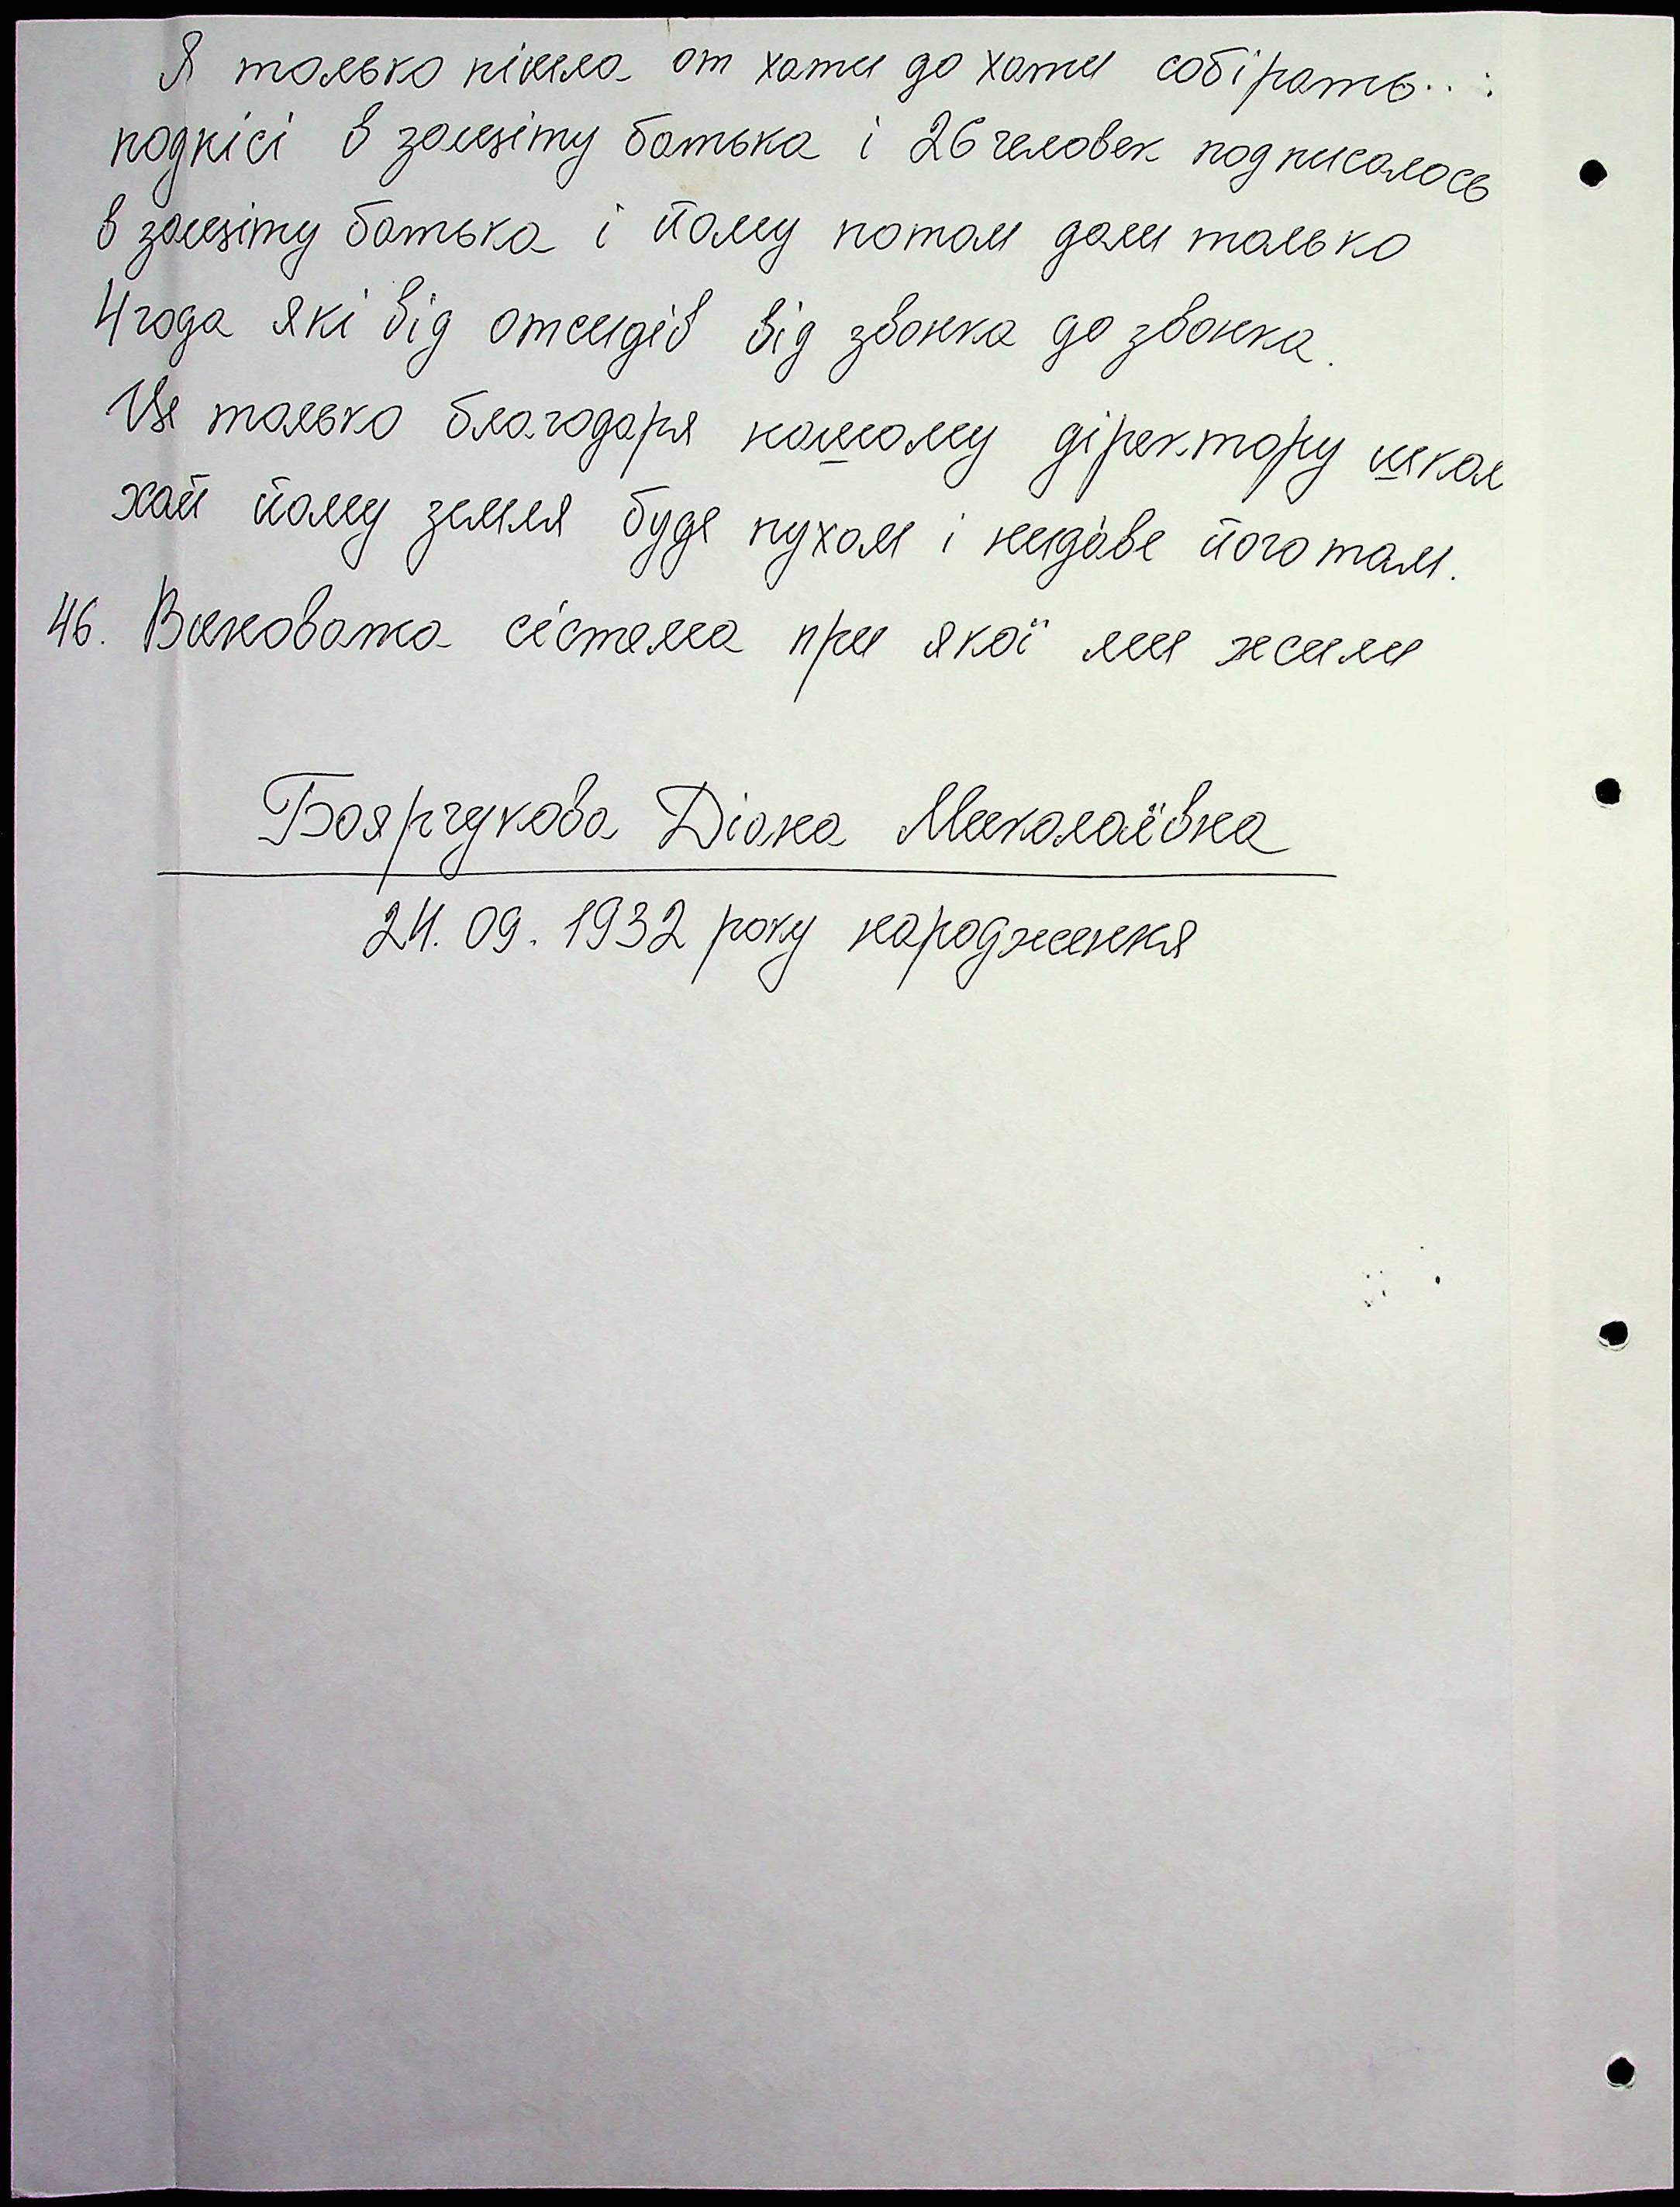 Я только пішла от хати до хати собірать...
подпісі в защіту батька і 26 человек подписалось
в защіту батька і йому потом дали только
4 года які від отсидів від звонка до звонка.
Це только благодаря нашому діректору школ
хай йому земля буде пухом і нидаве його там.
46. Виновата сістема при якої ми жили
Боярчукова Діана Миколаївна
24. 09. 1932 року народження